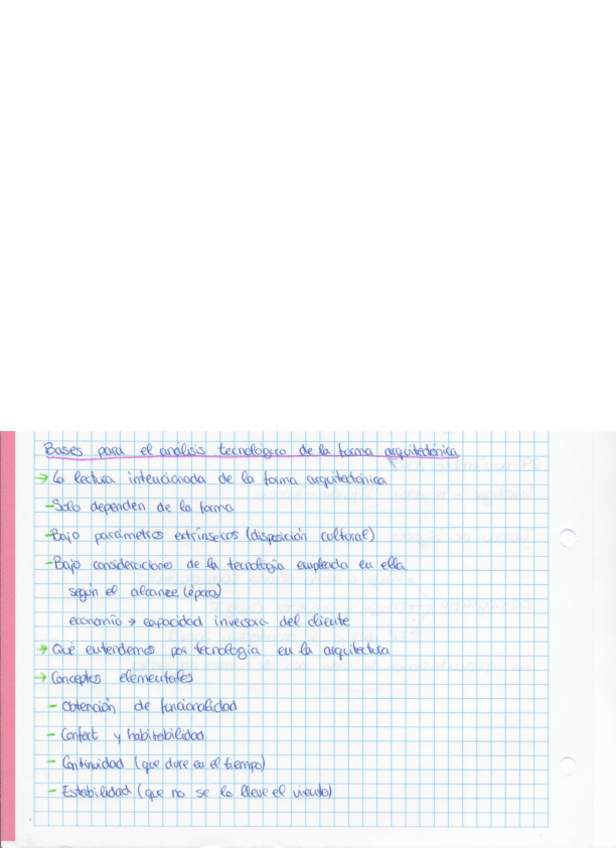 Bases para el análisis tecnológico de la forma arquitectónica
→ La lectura intencionada de la forma arquitectónica
- Solo dependen de la forma
- Bajo parámetros extrínsecos (disposición cultural)
- Bajo consideraciones de la tecnología empleada en ella
según el alcance (época)
economía → capacidad inversora del cliente
→ Qué entendemos por tecnología en la arquitectura
→ Conceptos elementales
- Obtención de funcionalidad
- Confort y habitabilidad
- Continuidad (que dure en el tiempo)
- Estabilidad (que no se lo lleve el viento)